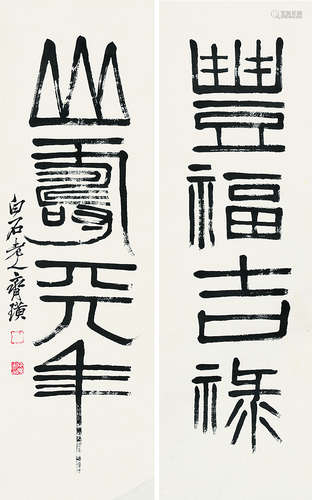 豐福吉祿
山壽年
白石老人齊璜